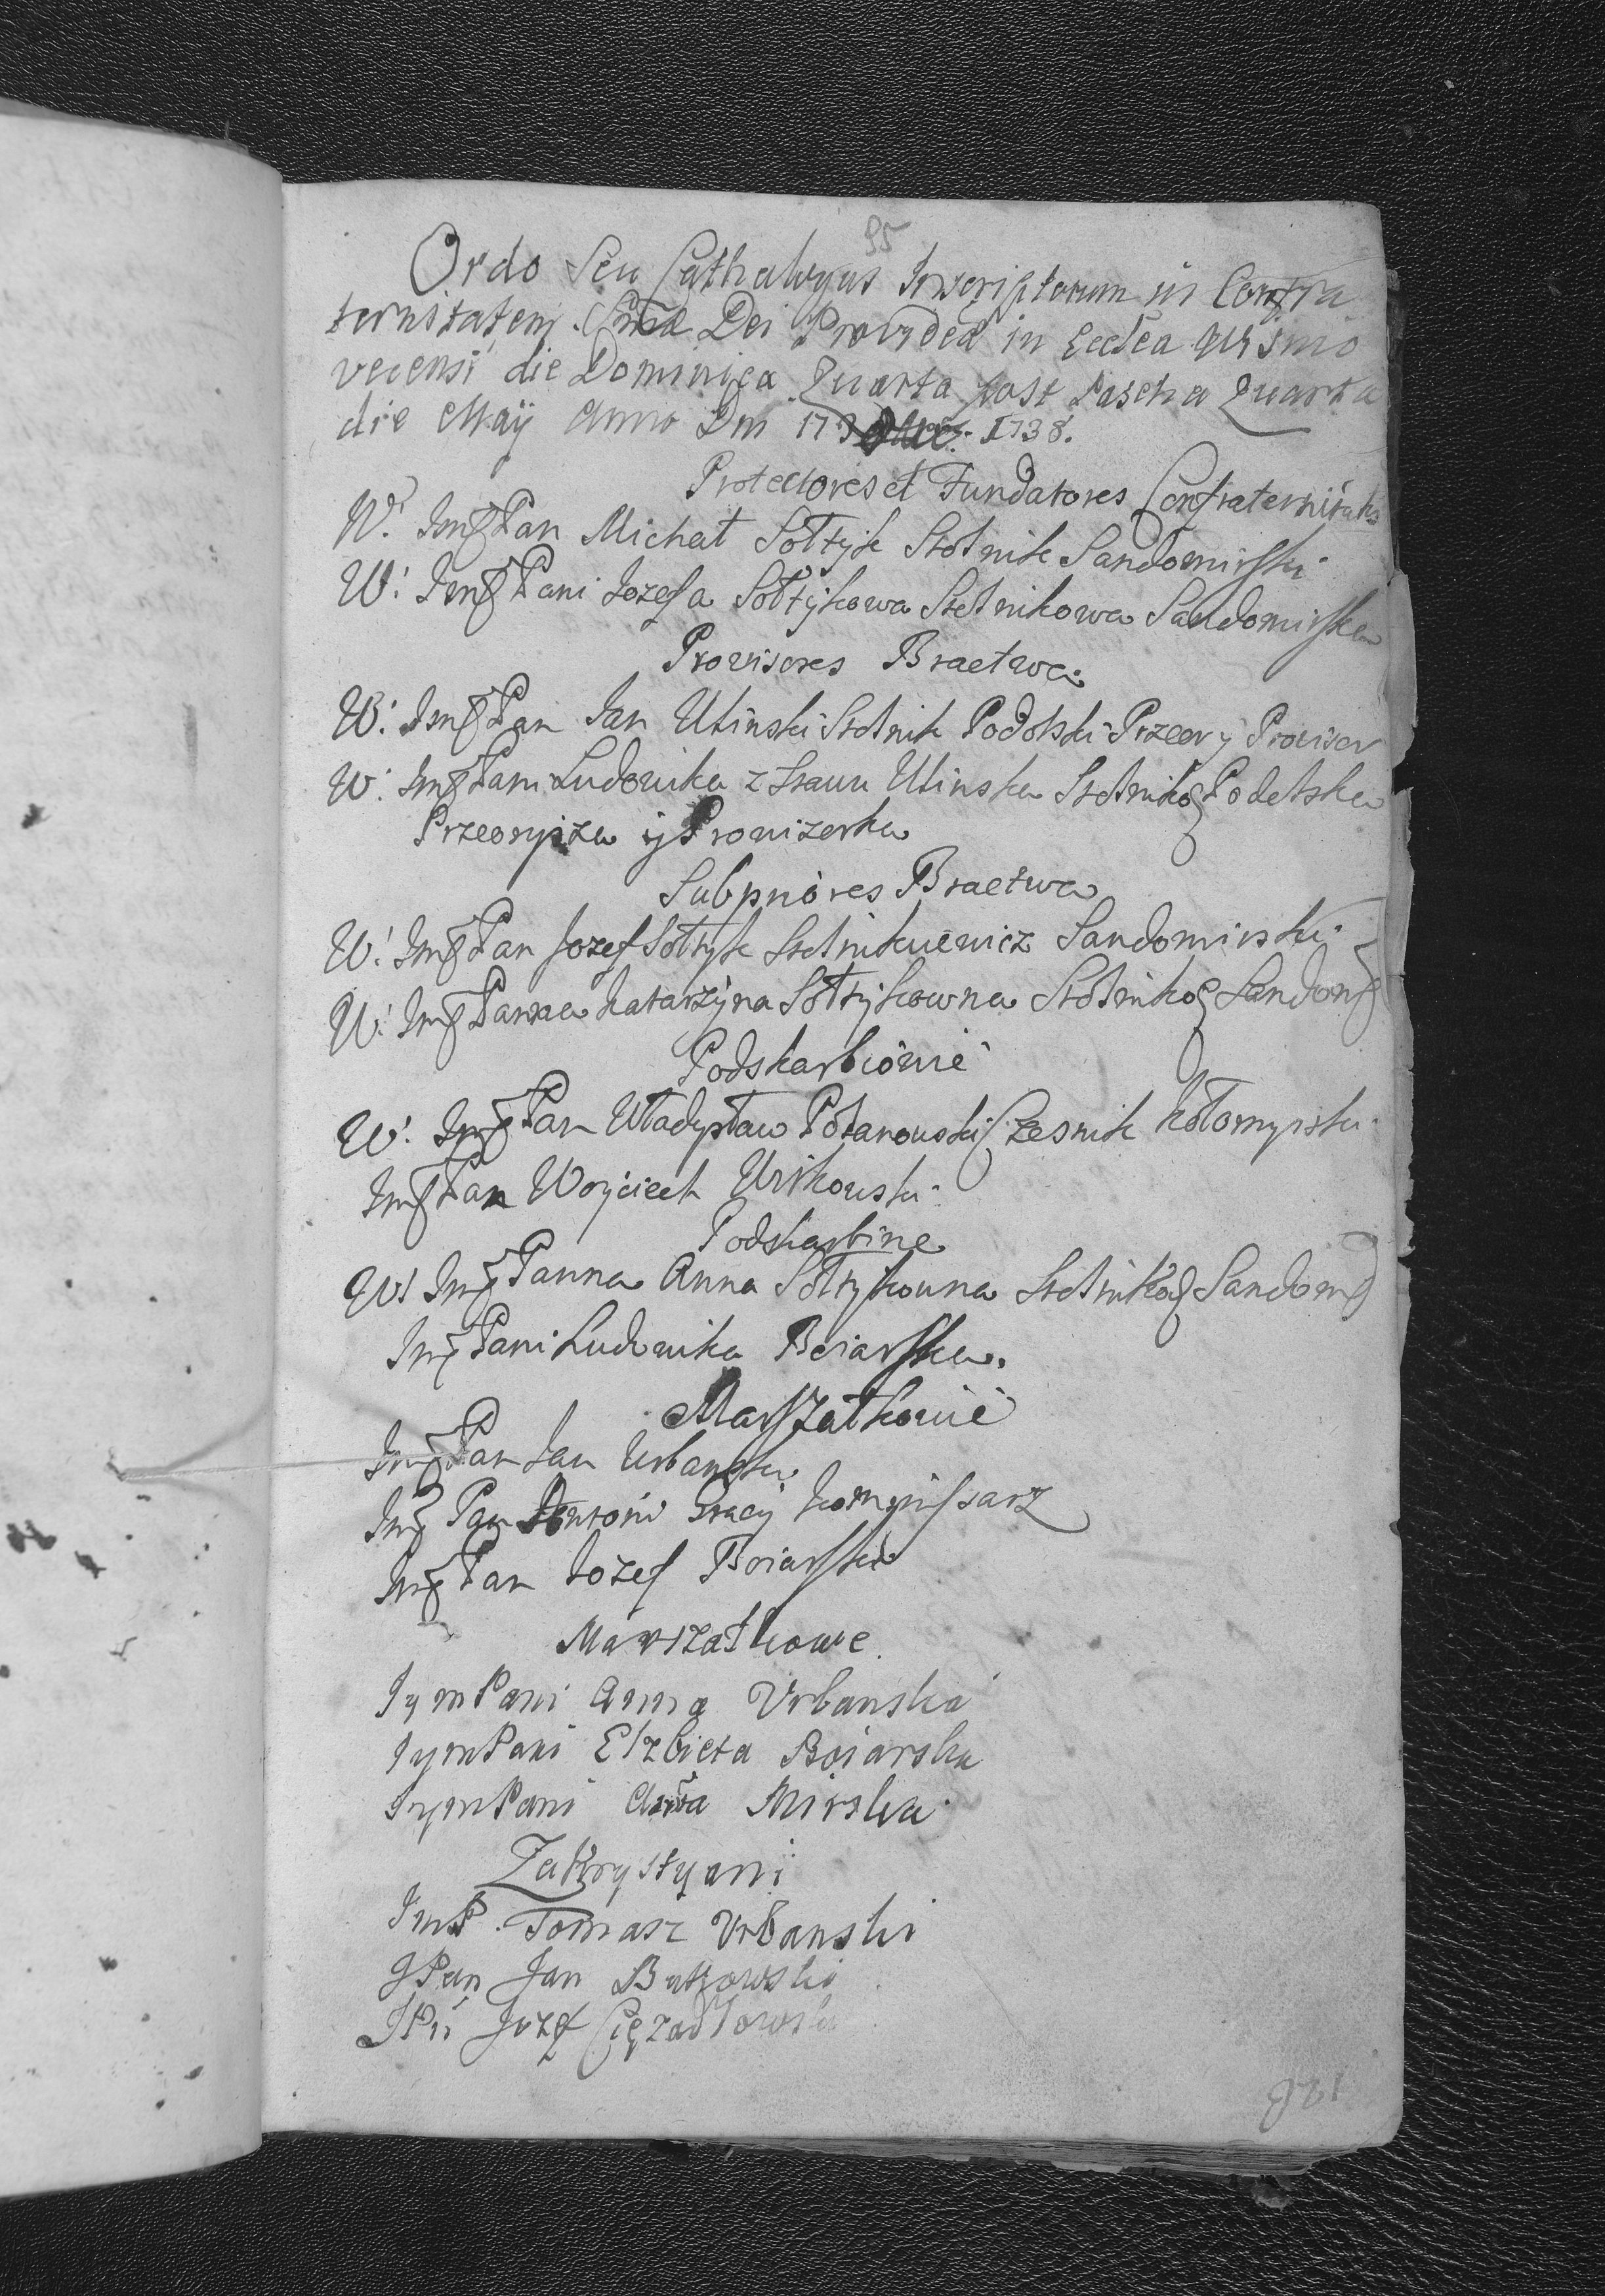 95
Ordo Seu Cathalogus Inscriptorum in Confra
ternitatem Smae Dei Provideae in Ecclea Krzino
vecensi die Dominica Quarta post Pascha Quarta
die Maÿ Anno Dni 1738.
Protectores et Fundatores Confraternitatis
W. Jmę Pan Michał Sołtyk Stolnik Sandomirski
W. Jmę Pani Jozefa Sołtykowa Stolnikowa Sandomirska
Provisores Bractwa
W. Jmę Pan Jan Uliński Stolnik Podolski Przeor y Prowisor
W. Jmę Pani Ludowika z Ulinska Stolniko Podolska
Przeorysza y Prowizorka
Subpriores Bractwa
W. Jmę Pan Jozef Sołtyk Stolnikiewicz Sandomirski
W. Jmę Panna Katarzyna Sołtykowna Stolniko Sandom
Podskarbiowie
W. Jmę Pan Władysław Potanowski Czesnik Kołomyiski
Jmę Pan Woyciech Witkowski
Podskarbine
W Jmę Panna Anna Sołtykowna Stolniko Sandom
Jmę Pani Ludowika Boiarska.
Marszałkowie
Jmę Pan Jan Urbanski
Jmę Pan Antoni Komissarz
Jmę Pan Jozef Boiarski
Marszałkowe
Jym Pani Anna Vrbanska
Jym Pani Elzbieta Boiarska
Jym Pani Anna Mirska
Zakrystyani
JmP. Tomasz Vrbanski
JPan Jan Butkowski
JPn Jozef